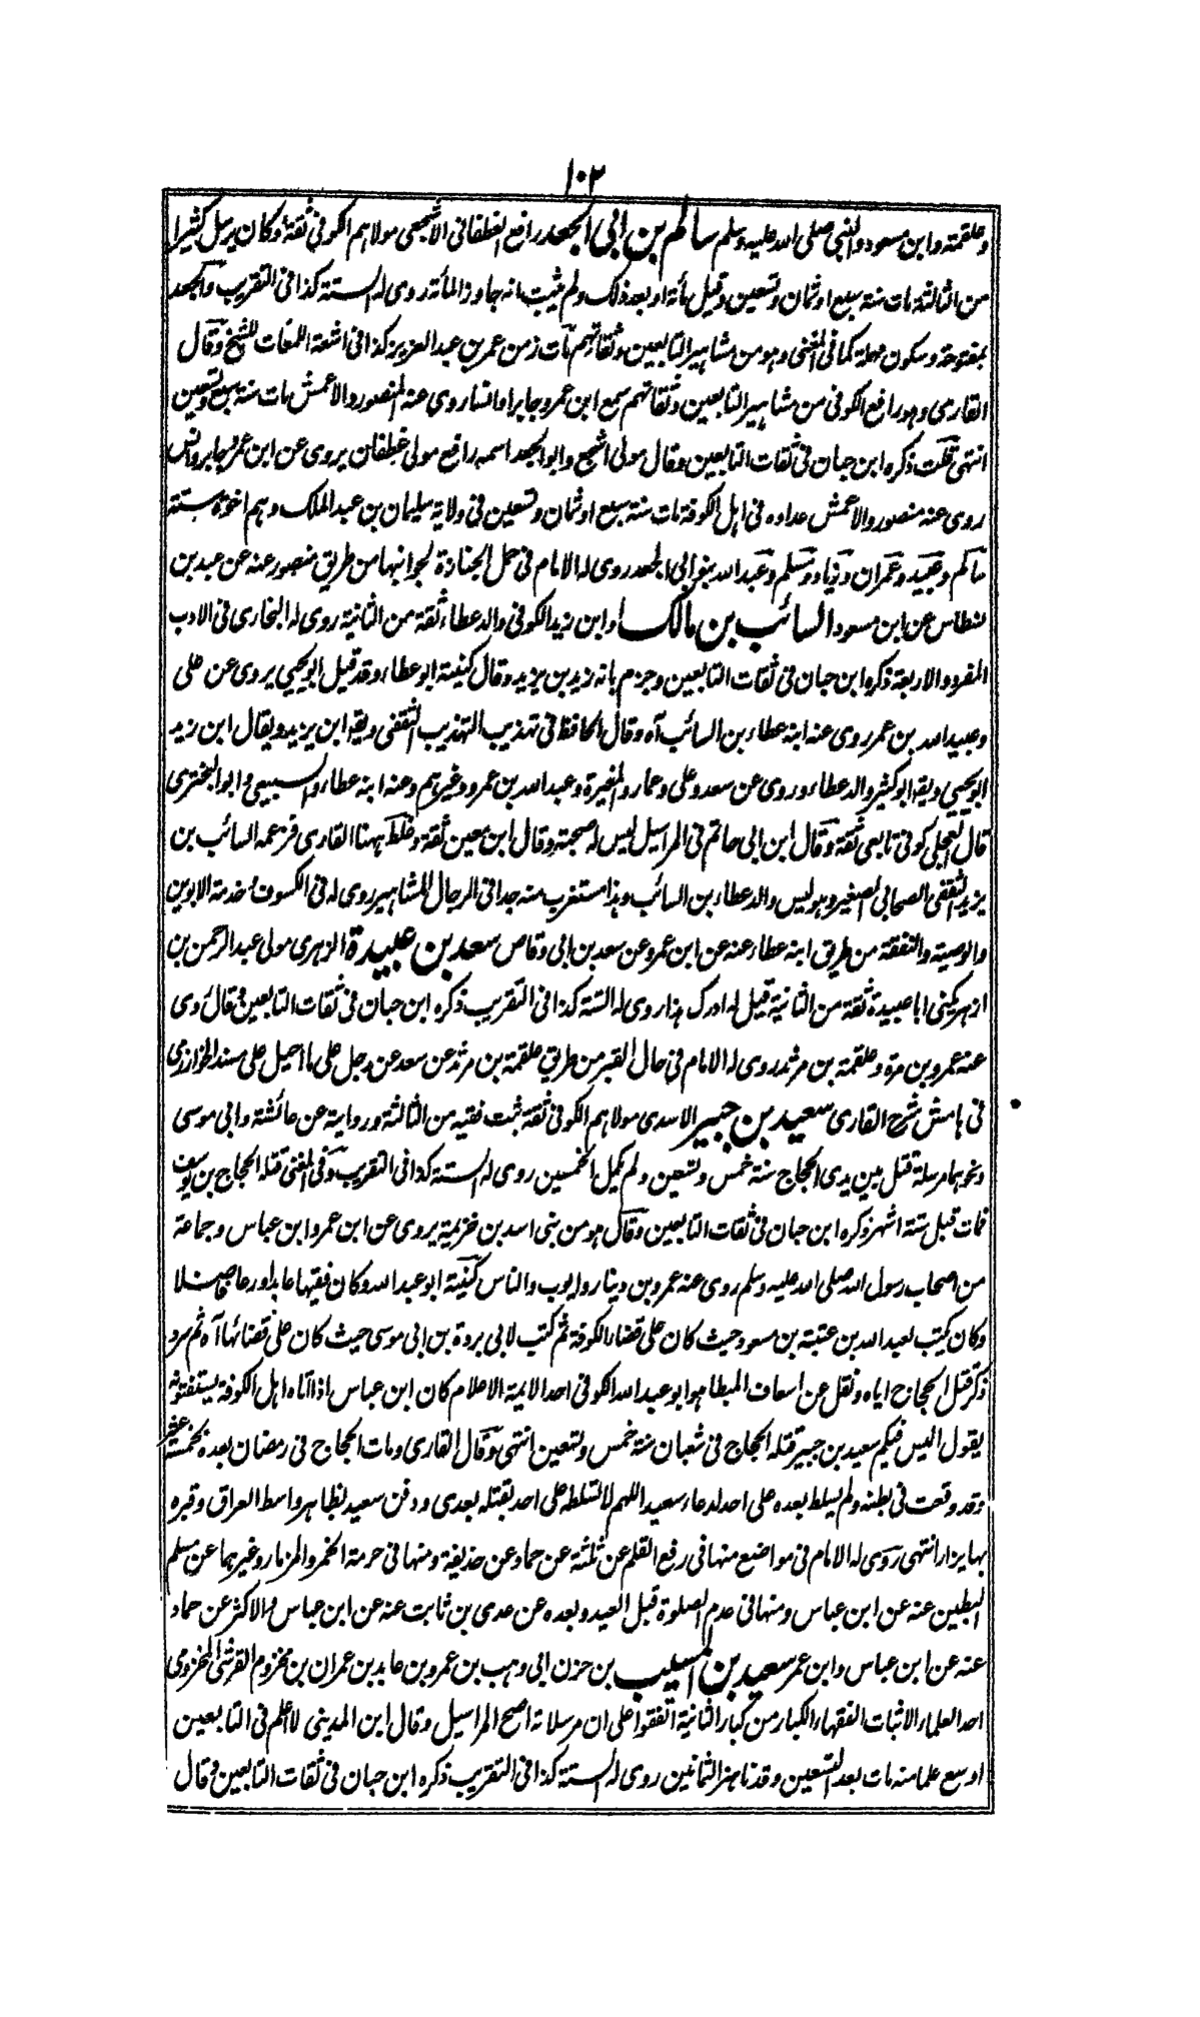 ١٠٢
وعلقمة وابن مسعود والنبي صلى الله عليه وسلم سالم بن ابي الجعد رافع الغطفاني الاشجعي مولاهم الكوفي ثقة وكان يرسل كثيرا
من الثالثة مات سنة سبع او ثمان وتسعين وقيل مأة او بعد ذلك ولم يثبت انه جاوز المأة روى له الستة كذا في التقريب والجعد
بمفتوحة وسكون مهملة كما في المغني وهو من مشاهير التابعين وثقاتهم مات زمن عمر بن عبد العزيز كذا في اشعة اللمعات للشيخ وقال
القاري وهو رافع الكوفي من مشاهير التابعين وثقاتهم سمع ابن عمرو جابرا وانسا روى عنه المنصور والاعمش مات سنة سبع وتسعين
انتهى قلت ذكره ابن حبان في ثقات التابعين وقال مولى اشجع وابو الجعد اسمه رافع مولى غطفان يروى عن ابن عمر وجابر وانس
روى عنه منصور والاعمش عداده في اهل الكوفة مات سنة سبع او ثمان وتسعين في ولاية سليمان بن عبد الملك وهم اخوة ستة
سالم وعبيد وعمران وزياد ومسلم وعبد الله بنو ابي الجعد روى له الامام في حمل الجنازة بجوانبها من طريق منصور عنه عن عبيد بن
نسطاس عن ابن مسعود السائب بن مالك او ابن زيد الكوفي والد عطاء ثقة من الثانية روى له البخاري في الادب
المفرد والاربعة ذكره ابن حبان في ثقات التابعين وجزم بانه زيد بن يزيد وقال كنيته ابو عطاء وقد قيل ابو يحيى يروى عن على
وعبيد الله بن عمر روى عنه ابنه عطاء بن السائب آه وقال الحافظ في تهذيب التهذيب الثقفي ويقه ابن يزيد ويقال ابن زيد
ابو يحيى ويقه ابو كثير والد عطاء وروى عن سعد وعلى وعمار والمغيرة وعبد الله بن عمرو وغيرهم وعنه ابنه عطاء والسبيعي وابو البختري
قال العجلي كوفي تابعي ثقة وقال ابن ابي حاتم في المراسيل ليس له صحبة وقال ابن معين ثقة وغلط ههنا القاري فزعمه السائب بن
يزيد الثقفي الصحابي الصغير وهو ليس والد عطاء بن السائب وهذا مستغرب منه جدا في الرجال للمشاهير روى له في الكسوف وخدمة الابوين
والوصية والنفقة من طريق ابنه عطاء عنه عن ابن عمرو عن سعد بن ابي وقاص سعد بن عبيدة الزهري مولى عبد الرحمن بن
ازهر يكنى ابا عبيدة ثقة من الثانية قيل له ادرك هذا روى له الستة كذا في التقريب ذكره ابن حبان في ثقات التابعين وقال روى
عنه عمرو بن مرة وعلقمة بن مرثد روى له الامام في حال القبر من طريق علقمة بن مرثد عن سعد عن رجل على ما احيل على سند الخوارزمي
في هامش شرح القاري سعيد بن جبير الاسدي مولاهم الكوفي ثقة ثبت فقيه من الثالثة ورواية عن عائشة وابي موسى
ونحوهما مرسلة قتل بين يدى الحجاج سنة خمس وتسعين ولم يكمل الخمسين روى له الستة كذا في التقريب وفي المغني قتله الحجاج بن يوسف
فمات قبل ستة اشهر وذكره ابن حبان في ثقات التابعين وقال هو من بني اسد بن خزيمة يروى عن ابن عمر وابن عباس وجماعة
من اصحاب رسول الله صلى الله عليه وسلم روى عنه عمرو بن دينار وايوب والناس كنيته ابو عبد الله وكان فقيها عابدا ورعا فاضلا
وكان يكتب لعبد الله بن عتبة بن مسعود حيث كان على قضاء الكوفة ثم كتب لابي بردة بن ابي موسى حيث كان على قضائها آه ثم سرد
ذكر قتل الحجاج اياه ونقل عن اسعاف المبطا هو ابو عبد الله الكوفي احد الايمة الاعلام كان ابن عباس اذا اتاه اهل الكوفة يستفتونه
يقول اليس فيكم سعيد بن جبير قتله الحجاج في شعبان سنة خمس وتسعين انتهى وقال القاري ومات الحجاج في رمضان بعده بخمسة عشر
وقد وقعت في بطنه ولم يسلط بعده على احد لدعاء سعيد اللهم لا تسلطه على احد يقتله بعدى ودفن سعيد بظاهر واسط العراق وقبره
بها يزار انتهى روى له الامام في مواضع منها في رفع القلم عن ثلثة عن حماد عن حذيفة ومنها في حرمة الخمر والمزمار وغيرهما عن مسلم
البطين عنه عن ابن عباس ومنها في عدم الصلوة قبل العيد وبعده عن عدى بن ثابت عنه عن ابن عباس والاكثر عن حماد
عنه عن ابن عباس وابن عمر سعيد بن المسيب بن حزن ابي وهب بن عمرو بن عابد بن عمران بن مخزوم القرشي المخزومي
احد العلماء الاثبات الفقهاء الكبار من كبار الثانية اتفقوا على ان مرسلاته اصح المراسيل وقال ابن المديني لا اعلم في التابعين
اوسع علما منه مات بعد التسعين وقد ناهز الثمانين روى له الستة كذا في التقريب ذكره ابن حبان في ثقات التابعين وقال